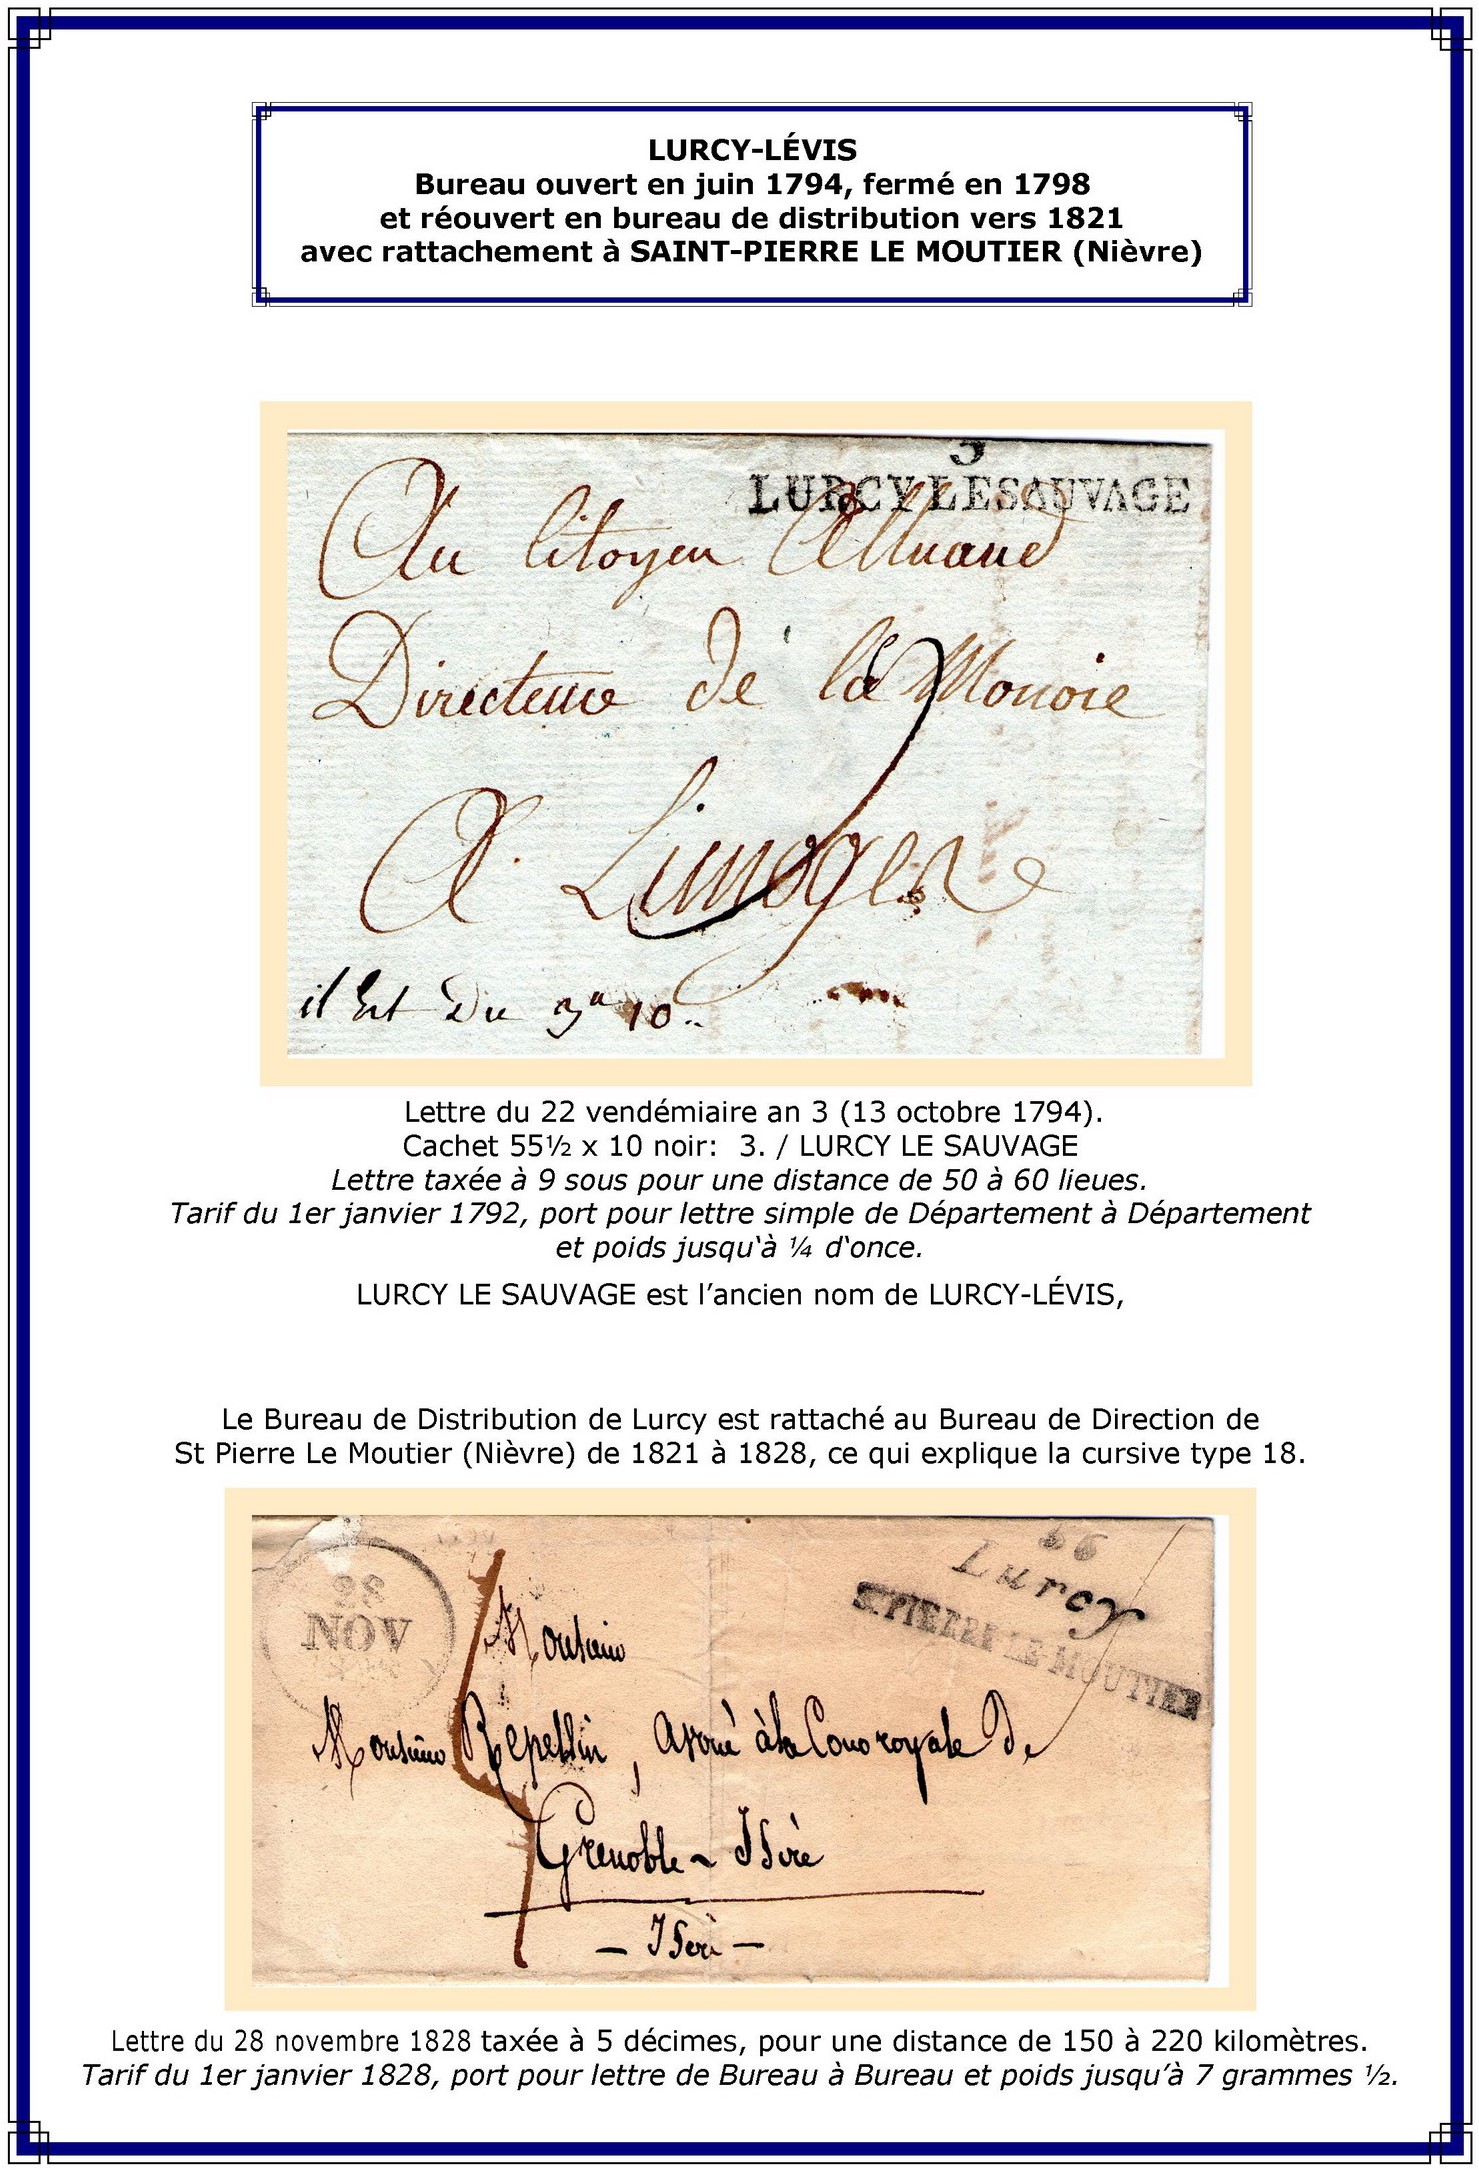 LURCY-LÉVIS
Bureau ouvert en juin 1794, fermé en 1798
et réouvert en bureau de distribution vers 1821
avec rattachement à SAINT-PIERRE LE MOUTIER (Nièvre)
3
LURCY LE SAUVAGE
Au Citoyen Alluaud
Directeur de la Monoie
A Limoges
9
il Est Du 3ˡˡ 10..
Lettre du 22 vendémiaire an 3 (13 octobre 1794).
Cachet 55½ x 10 noir: 3. / LURCY LE SAUVAGE
Lettre taxée à 9 sous pour une distance de 50 à 60 lieues.
Tarif du 1er janvier 1792, port pour lettre simple de Département à Département
et poids jusqu‘à ¼ d‘once.
LURCY LE SAUVAGE est l’ancien nom de LURCY-LÉVIS,
Le Bureau de Distribution de Lurcy est rattaché au Bureau de Direction de
St Pierre Le Moutier (Nièvre) de 1821 à 1828, ce qui explique la cursive type 18.
28
NOV
Lurcy
ST PIERRE-LE-MOUTIER
5
Monsieur
Monsieur Repellin, avoué à la Cour royale de
Grenoble - Isère
- Isère -
Lettre du 28 novembre 1828 taxée à 5 décimes, pour une distance de 150 à 220 kilomètres.
Tarif du 1er janvier 1828, port pour lettre de Bureau à Bureau et poids jusqu’à 7 grammes ½.